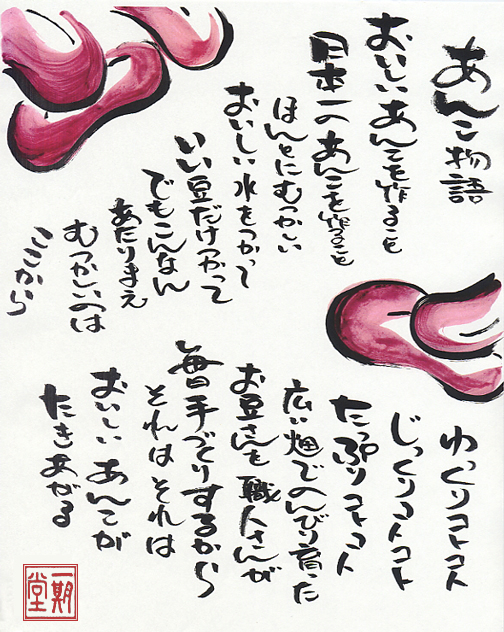 あんこ物語
おいしいあんこを作ること
日本一のあんこを作ること
ほんとにむつかしい
おいしい水をつかって
いい豆だけつかって
でもこんなん
あたりまえ
むつかしいのは
ここから
ゆっくりコトコト
じっくりコトコト
たっぷりコトコト
広い畑でのんびり育った
お豆さんを職人さんが
毎日手づくりするから
それはそれは
おいしいあんこが
たきあがる
一期堂